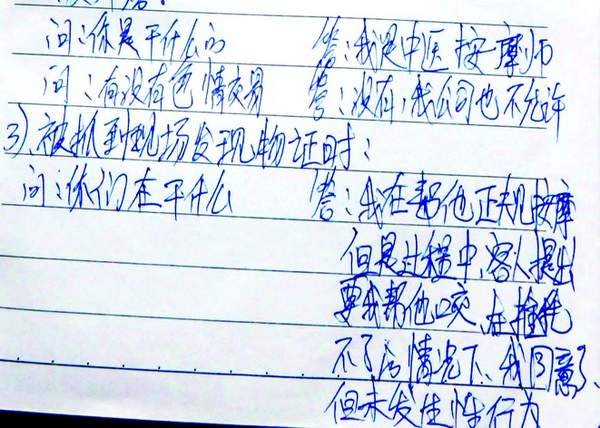 问:你是干什么的 答:我是中医按摩师
问:有没有色情交易 答:没有,我公司也不允许
3)被抓到现场发现物证时:
问:你们在干什么 答:我在帮他正规按摩
但是过程中,客人提出
要我帮他咬,在推托
不了的情况下,我同意了,
但未发生性行为